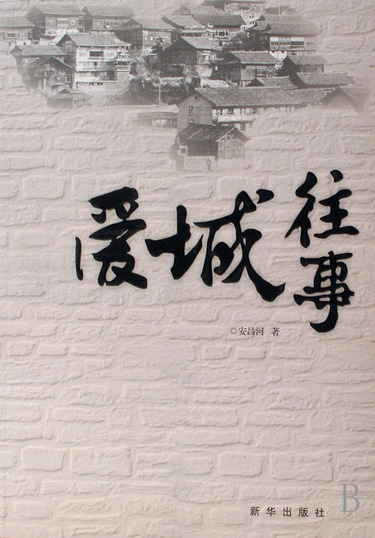 爱城往事
◎安昌河 著
新华出版社
B